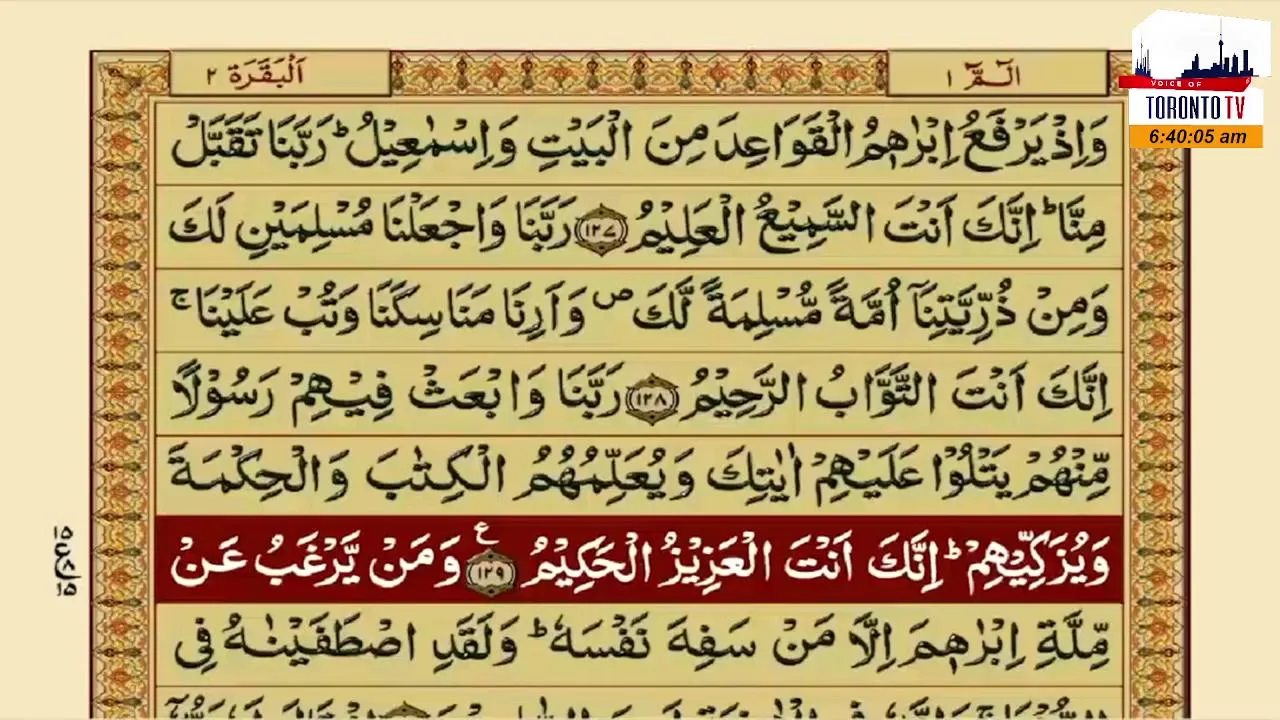 اَلْبَقَرَة ٢
الٓمّٓ ١
VOICE OF
TORONTO TV
6:40:05 am
وَاِذْ يَرْفَعُ اِبْرٰهٖمُ الْقَوَاعِدَ مِنَ الْبَيْتِ وَاِسْمٰعِيْلُ ؕ رَبَّنَا تَقَبَّلْ
مِنَّا ؕ اِنَّكَ اَنْتَ السَّمِيْعُ الْعَلِيْمُ ﴿١٢٧﴾ رَبَّنَا وَاجْعَلْنَا مُسْلِمَيْنِ لَكَ
وَمِنْ ذُرِّيَّتِنَاۤ اُمَّةً مُّسْلِمَةً لَّكَ ۪ وَاَرِنَا مَنَاسِكَنَا وَتُبْ عَلَيْنَا ۚ
اِنَّكَ اَنْتَ التَّوَّابُ الرَّحِيْمُ ﴿١٢٨﴾ رَبَّنَا وَابْعَثْ فِيْهِمْ رَسُوْلًا
مِّنْهُمْ يَتْلُوْا عَلَيْهِمْ اٰيٰتِكَ وَيُعَلِّمُهُمُ الْكِتٰبَ وَالْحِكْمَةَ
وَيُزَكِّيْهِمْ ؕ اِنَّكَ اَنْتَ الْعَزِيْزُ الْحَكِيْمُ ﴿١٢٩﴾ ع وَمَنْ يَّرْغَبُ عَنْ
مِّلَّةِ اِبْرٰهٖمَ اِلَّا مَنْ سَفِهَ نَفْسَهٗ ؕ وَلَقَدِ اصْطَفَيْنٰهُ فِى